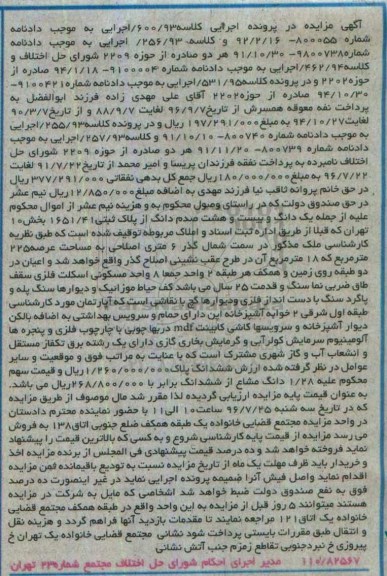 آگهی مزایده در پرونده اجرایی کلاسه۶۰۰/۹۳/اجرایی به موجب دادنامه
شماره ۸۰۰۰۵۵- ۹۲/۲/۱۶ و کلاسه ۲۵۶/۹۳/ اجرایی به موجب دادنامه
شماره۹۸۰۰۷۳۸- ۹۱/۱۰/۳۰ هر دو صادره از حوزه ۲۲۰۹ شورای حل اختلاف و
کلاسه۴۶۲/۹۴/اجرایی به موجب دادنامه شماره ۹۱۰۰۰۰۴- ۹۴/۱/۱۸ صادره از
حوزه۲۲۰۲ و در پرونده کلاسه۵۳۱/۹۵/اجرایی به موجب دادنامه شماره۹۱۰۰۴۲۱-
۹۴/۱۰/۳۰ صادره از حوزه۲۲۰۲ آقای علی مهدی زاده فرزند ابوالفضل به
پرداخت نفقه معوقه همسرش از تاریخ۹۶/۹/۷ لغایت ۸۸/۹/۷ و از تاریخ۹۰/۳/۷
لغایت۹۴/۱۰/۲۷ به مبلغ۱۹۷/۲۹۱/۰۰۰ ریال و در پرونده کلاسه۲۵۵/۹۳/اجرایی
به موجب دادنامه شماره ۸۰۰۷۴۰- ۹۱/۱۰/۱۰ و کلاسه۲۵۷/۹۳/اجرایی به موجب
دادنامه شماره ۸۰۰۷۳۹- ۹۱/۱۱/۲۰ هر دو صادره از حوزه ۲۲۰۹ شورای حل
اختلاف نامبرده به پرداخت نفقه فرزندان پریسا و امیر محمد از تاریخ۹۱/۷/۲۲ لغایت
۹۶/۷/۲۲ به مبلغ۱۸۰/۰۰۰/۰۰۰ریال جمع کل بدهی نفقاتی ۳۷۷/۲۹۱/۰۰۰ریال
در حق خانم پروانه ثاقب نیا فرزند مهدی به اضافه مبلغ۱۲/۸۵۰/۰۰۰ریال نیم عشر
در حق صندوق دولت که در راستای وصول محکوم به و هزینه نیم عشر از اموال محکوم
علیه از جمله یک دانگ و بیست و هشت صدم دانگ از پلاک ثبتی۱۶۵۱/۴۱ بخش۱۰
تهران که قبلا از طریق اداره ثبت اسناد و املاک مربوطه توقیف شده است که طبق نظریه
کارشناسی ملک مذکور در سمت شمال گذر ۶ متری اصلاحی به مساحت عرصه۲۲۵
مترمربع که ۱۸ مترمربع آن در طرح عقب نشینی اصلاح گذر واقع خواهد شد و اعیان در
دو طبقه روی زمین و همکف هر طبقه ۲ واحد جمعا ۸ واحد مسکونی اسکلت فلزی سقف
طاق ضربی نما سنگ و قدمت ۲۵ سال می باشد کف حیاط موزائیک و دیوارها سنگ پله و
پاگرد سنگ با دست انداز فلزی ودیوارها گچ با نقاشی است که آپارتمان مورد کارشناسی
طبقه اول شرقی ۲ خوابه آشپزخانه اپن دارای حمام و سرویس بهداشتی به اضافه بالکن
دیوار آشپزخانه و سرویسها کاشی کابینت mdf دربها چوبی با چارچوب فلزی و پنجره ها
آلومینیوم سرمایش کولرآبی و گرمایش بخاری گازی دارای یک رشته برق تکفاز مستقل
و انشعاب آب و گاز شهری مشترک است که با عنایت به مراتب فوق و موقعیت و سایر
عوامل در نظر گرفته شده ارزش ششدانگ پلاک۱/۲۶۰/۰۰۰/۰۰۰ریال و قیمت سهم
محکوم علیه ۱/۲۸ دانگ مشاع از ششدانگ برابر با ۲۶۸/۸۰۰/۰۰۰ریال می باشد.
به عنوان قیمت پایه مزایده ارزیابی گردیده لذا مقرر شد مال موصوف از طریق مزایده
که در تاریخ سه شنبه ۹۶/۷/۲۵ ساعت۱۰ الی۱۱ با حضور نماینده محترم دادستان
در واحد مزایده مجتمع قضایی خانواده یک طبقه همکف ضلع جنوبی اتاق۱۳۸ به فروش
می رسد مزایده از قیمت پایه کارشناسی شروع و به کسی که بالاترین قیمت را پیشنهاد
نماید فروخته خواهد شد و ده درصد قیمت پیشنهادی فی المجلس از برنده مزایده اخذ
و خریدار باید ظرف مهلت یک ماه از تاریخ مزایده نسبت به تودیع باقیمانده ثمن مزایده
اقدام نماید واصل فیش آنرا ضمیمه پرونده اجرایی نماید در غیر اینصورت ده درصد
فوق به نفع صندوق دولت ضبط خواهد شد اشخاصی که مایل به شرکت در مزایده
هستند میتوانند ۵ روز قبل از مزایده به این واحد واقع در طبقه همکف مجتمع قضایی
خانواده یک اتاق۱۲۱ مراجعه نمایند تا مقدمات بازدید آنها فراهم گردد و هزینه نقل
و انتقال طبق مقررات بایستی پرداخت شود نشانی مجتمع قضایی خانواده یک تهران خ
پیروزی خ نبردجنوبی تقاطع زمزم جنب آتش نشانی
۱۱۰/۸۲۵۶۷ مدیر اجرای احکام شورای حل اختلاف مجتمع شماره۲۳ تهران